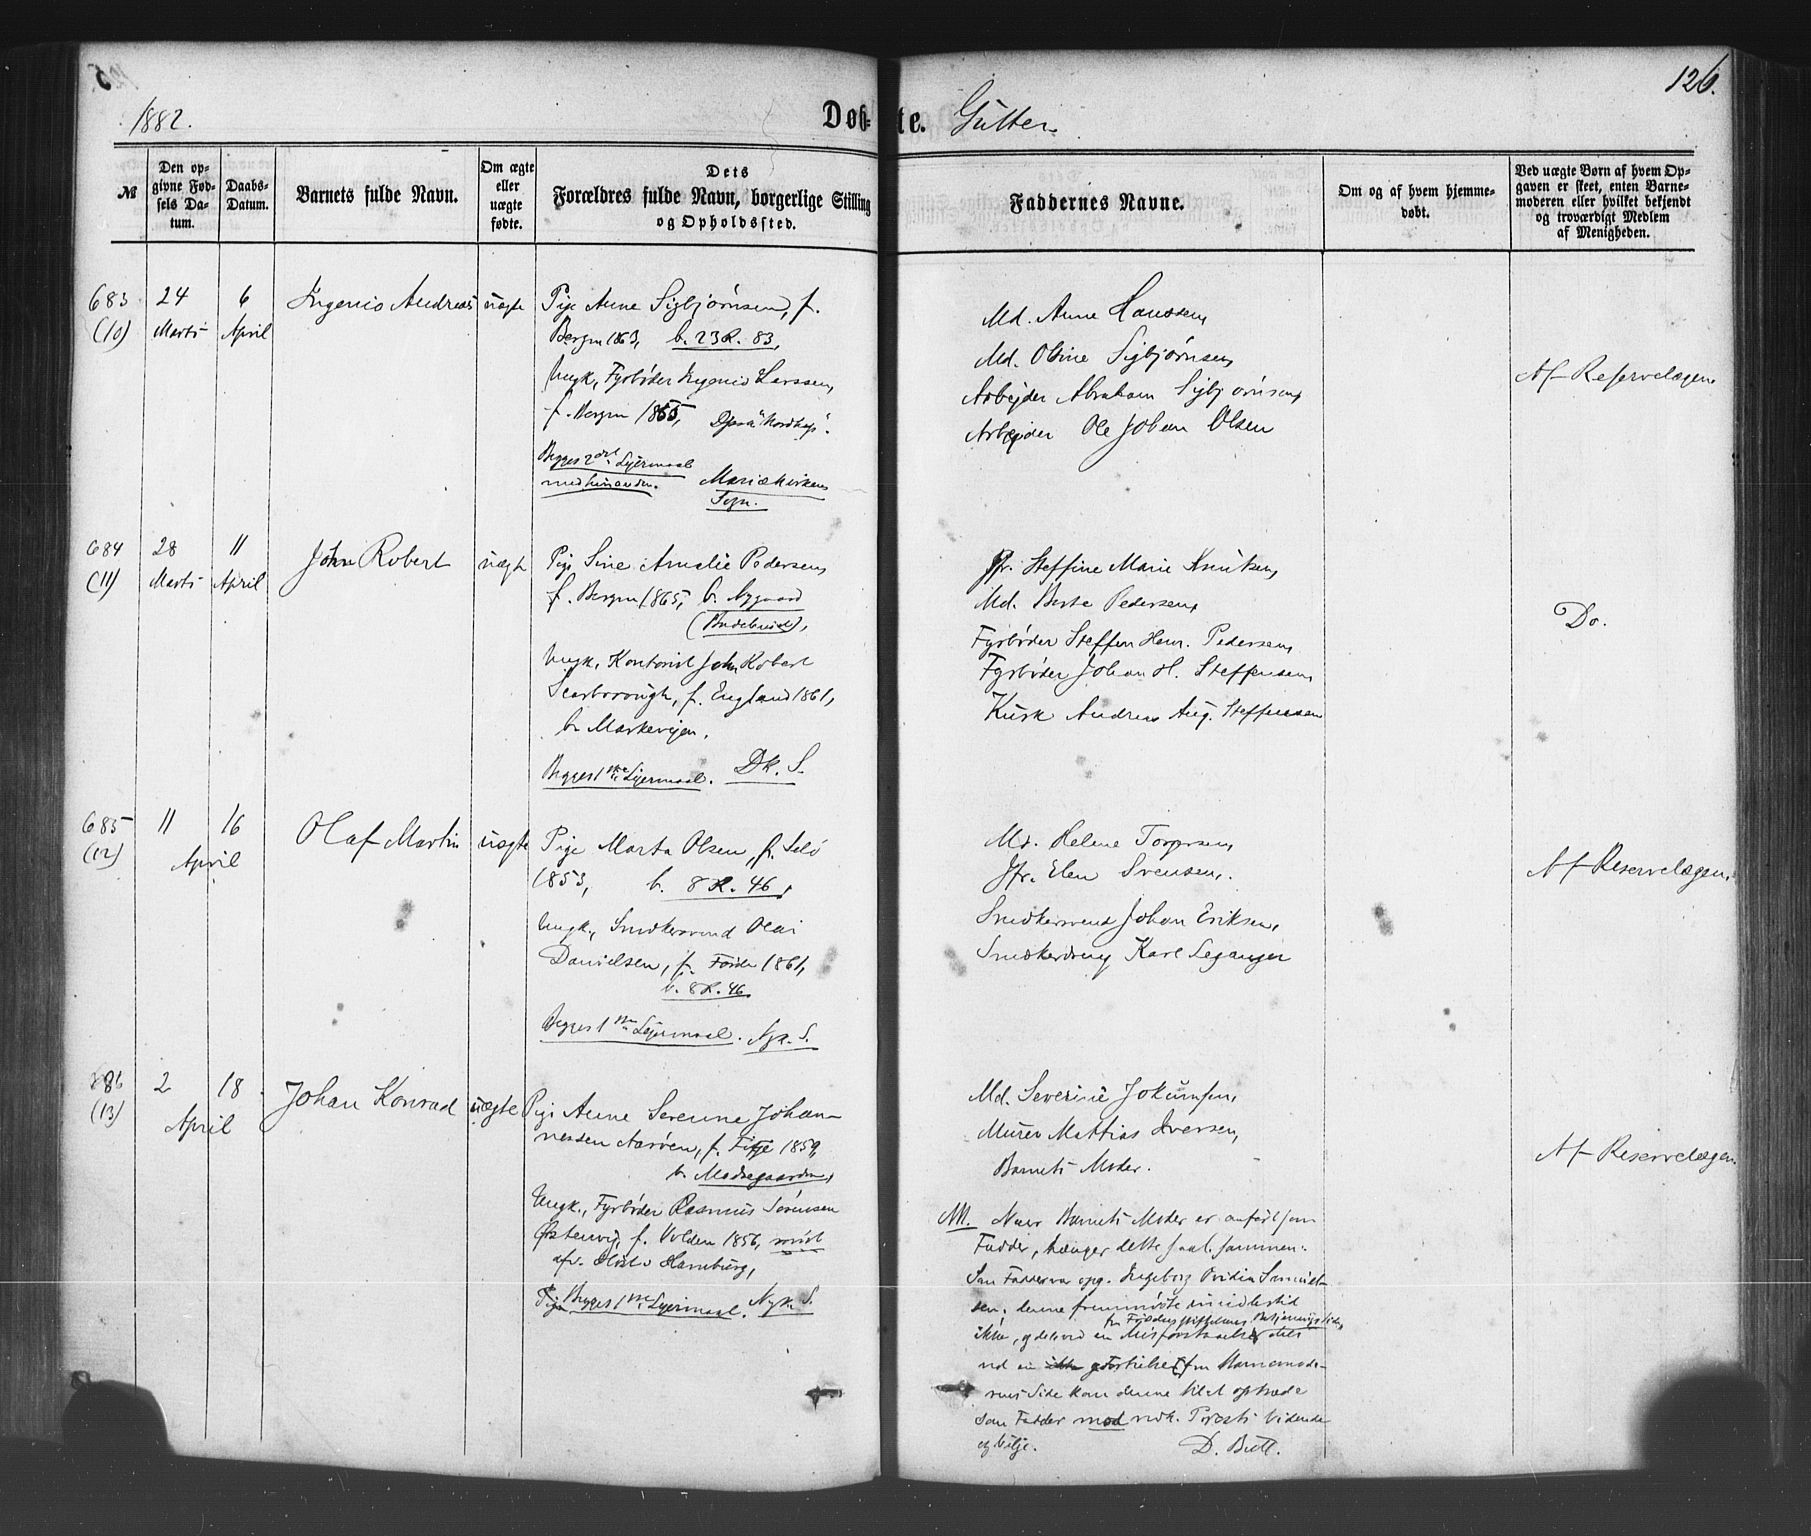 1882.
Døb-
te. Gutter.
126.
№
Den op-
givne Fød-
sels Da-
tum.
Daabs-
Datum.
Barnets fulde Navn.
Om ægte
eller
uægte
fødte.
Dets
Forældres fulde Navn, borgerlige Stilling
og Opholdssted.
Faddernes Navne.
Om og af hvem hjemme-
døbt.
Ved uægte Børn af hvem Op-
gaven er skeet, enten Barne-
moderen eller hvilket bekjendt
og troværdigt Medlem
af Menigheden.
683
(10)
24
Marts
6
April
Ingenio Andreas
uægte
Pige Anne Sigbjørnsen, f.
Bergen 1863, b. 23 R. 83,
Ungk, Fyrbøder Ingenio Larssen,
f. Bergen 1855, "Nordkap".
Begges 2det Leiermaal
med hinanden. Mariækirkens
Sogn.
Md. Anne Hanssen,
Md. Oline Sigbjørnsen,
Arbejder Abraham Sigbjørnsen,
Arbejder Ole Johan Olsen
Af Reservelægen.
684
(11)
28
Marts
11
April
John Robert
uægte
Pige Sine Amalie Pedersen,
f. Bergen 1865, b. Nygaard
Ungk, Kontorist John Robert
Scarborough, f. England 1861,
b. Markevejen.
Begges 1ste Lejermaal. Dk. S.
Jfr. Steffine Marie Knutsen,
Md. Berte Pedersen,
Fyrbøder Steffen Henr. Pedersen,
Fyrbøder Johan H. Steffensen,
Kusk Andreas Aug. Steffensen
Do.
685
(12)
11
16
April
Olaf Martin
uægte
Pige Marta Olsen, f. Selø
1853, b. 8 R. 46,
Ungk, Snedkersvend Olai
Danielsen, f. Førde 1861,
b. 8 R. 46.
Begges 1ste Lejermaal. Nyk. S.
Md. Helene Torgersen,
Jfr. Elen Svensen,
Snedkersvend Johan Eriksen,
Snedkerdreng Karl Leganger
Af Reservelægen.
686
(13)
2
18
April
Johan Konrad
uægte
Pige Anne Serenne Johan-
nessen Aarøen, f. Fitje 1859,
b. Madsegaarden,
Ungk., Fyrbøder Rasmus Sørensen
Østenvig, f. Volden 1856,
Hamburg,
Pige Begges 1ste Lejermaal. Nyk. S.
Md. Severine Jokumsen,
Murer Mattias Iversen,
Barnets Moder.
Af Reservelægen.
NB. Naar Barnets Moder er anført som
Fadder, hænger dette saal. sammen:
Som Fadder var opg. Ingeborg Ovidia Samuel-
sen; denne fremmødte imidlertid
fra Fødselsstiftelsens Betjenings Side,
ikke, og ved en Misforstaaelse
ved en ikke fra Barnemode-
rens Side kom denne til at optræde
som Fadder mod vedk. Præsts Vidende
og Vilje.
D. Bull.